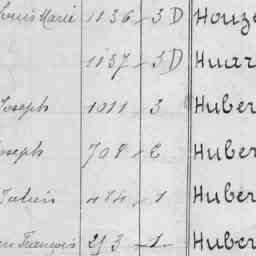 Louis Marie 1136 3 D Houze
1137 3 D Huar
Joseph 1011 3 Huber
Joseph 708 6 Huber
Julien 484 1 Huber
François 213 1 Huber